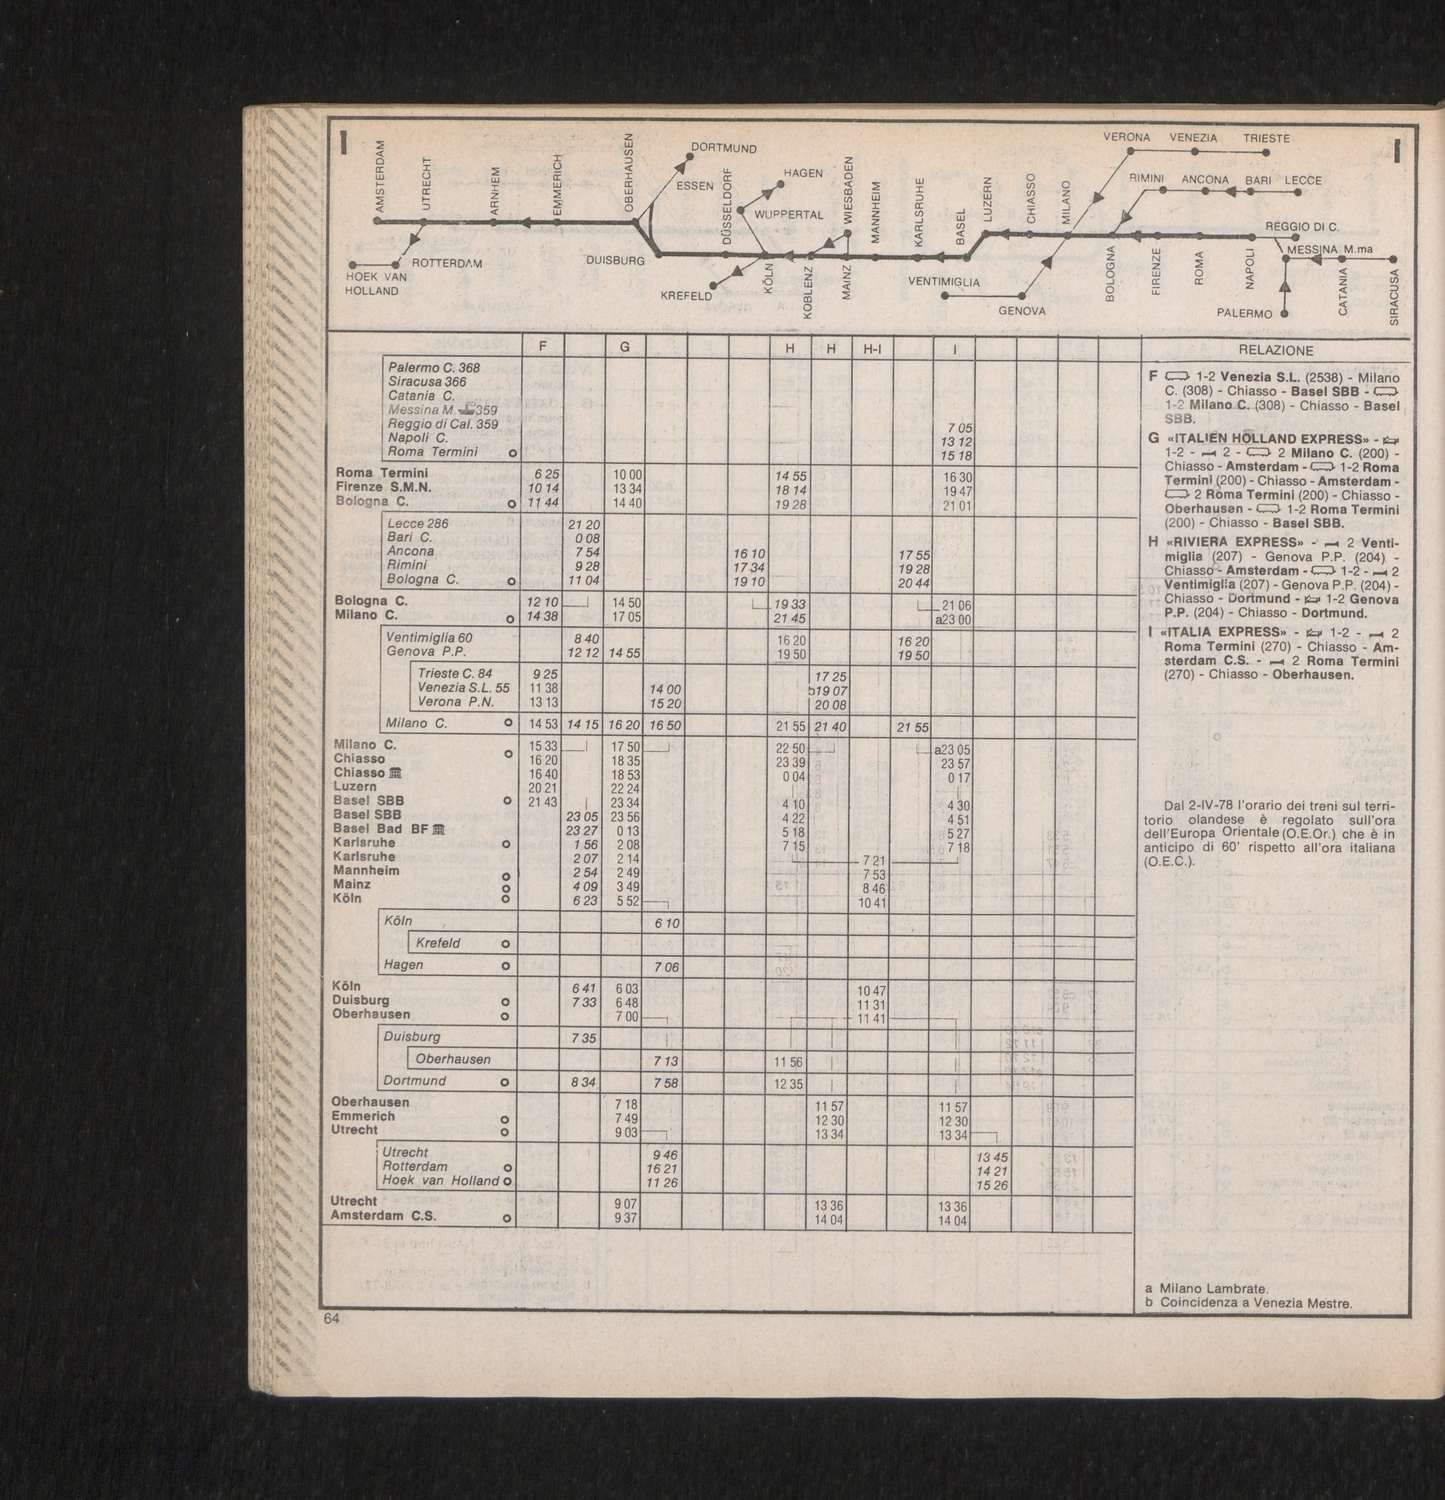 I
I
AMSTERDAM
UTRECHT
ARNHEM
EMMERICH
OBERHAUSEN
DORTMUND
ESSEN
DÜSSELDORF
HAGEN
WUPPERTAL
WIESBADEN
MANNHEIM
KARLSRUHE
BASEL
LUZERN
CHIASSO
MILANO
VERONA VENEZIA TRIESTE
RIMINI ANCONA BARI LECCE
REGGIO DI C.
MESSINA M.ma
ROTTERDAM
HOEK VAN
HOLLAND
DUISBURG
KREFELD
KÖLN
KOBLENZ
MAINZ
VENTIMIGLIA
GENOVA
BOLOGNA
FIRENZE
ROMA
NAPOLI
PALERMO
CATANIA
SIRACUSA
F G H H H-I I
Palermo C. 368
Siracusa 366
Catania C.
Messina M. 359
Reggio di Cal. 359 7 05
Napoli C. 13 12
Roma Termini 15 18
Roma Termini 6 25 10 00 14 55 16 30
Firenze S.M.N. 10 14 13 34 18 14 19 47
Bologna C. 11 44 14 40 19 28 21 01
Lecce 286 21 20
Bari C. 0 08
Ancona 7 54 16 10 17 55
Rimini 9 28 17 34 19 28
Bologna C. 11 04 19 10 20 44
Bologna C. 12 10 14 50 19 33 21 06
Milano C. 14 38 17 05 21 45 a23 00
Ventimiglia 60 8 40 16 20 16 20
Genova P.P. 12 12 14 55 19 50 19 50
Trieste C. 84 9 25 17 25
Venezia S.L. 55 11 38 14 00 b19 07
Verona P.N. 13 13 15 20 20 08
Milano C. 14 53 14 15 16 20 16 50 21 55 21 40 21 55
Milano C. 15 33 17 50 22 50 a23 05
Chiasso 16 20 18 35 23 39 23 57
Chiasso 16 40 18 53 0 04 0 17
Luzern 20 21 22 24
Basel SBB 21 43 23 34 4 10 4 30
Basel SBB 23 05 23 56 4 22 4 51
Basel Bad BF 23 27 0 13 5 18 5 27
Karlsruhe 1 56 2 08 7 15 7 18
Karlsruhe 2 07 2 14 7 21
Mannheim 2 54 2 49 7 53
Mainz 4 09 3 49 8 46
Köln 6 23 5 52 10 41
Köln 6 10
Krefeld
Hagen 7 06
Köln 6 41 6 03 10 47
Duisburg 7 33 6 48 11 31
Oberhausen 7 00 11 41
Duisburg 7 35
Oberhausen 7 13 11 56
Dortmund 8 34 7 58 12 35
Oberhausen 7 18 11 57 11 57
Emmerich 7 49 12 30 12 30
Utrecht 9 03 13 34 13 34
Utrecht 9 46 13 45
Rotterdam 16 21 14 21
Hoek van Holland 11 26 15 26
Utrecht 9 07 13 36 13 36
Amsterdam C.S. 9 37 14 04 14 04
RELAZIONE
F 1-2 Venezia S.L. (2538) - Milano
C. (308) - Chiasso - Basel SBB -
1-2 Milano C. (308) - Chiasso - Basel
SBB.
G «ITALIEN HOLLAND EXPRESS» -
1-2 - 2 - 2 Milano C. (200) -
Chiasso - Amsterdam - 1-2 Roma
Termini (200) - Chiasso - Amsterdam -
2 Roma Termini (200) - Chiasso -
Oberhausen - 1-2 Roma Termini
(200) - Chiasso - Basel SBB.
H «RIVIERA EXPRESS» - 2 Venti-
miglia (207) - Genova P.P. (204) -
Chiasso - Amsterdam - 1-2 - 2
Ventimiglia (207) - Genova P.P. (204) -
Chiasso - Dortmund - 1-2 Genova
P.P. (204) - Chiasso - Dortmund.
I «ITALIA EXPRESS» - 1-2 - 2
Roma Termini (270) - Chiasso - Am-
sterdam C.S. - 2 Roma Termini
(270) - Chiasso - Oberhausen.
Dal 2-IV-78 l'orario dei treni sul terri-
torio olandese è regolato sull'ora
dell'Europa Orientale (O.E.Or.) che è in
anticipo di 60' rispetto all'ora italiana
(O.E.C.).
a Milano Lambrate.
b Coincidenza a Venezia Mestre.
64